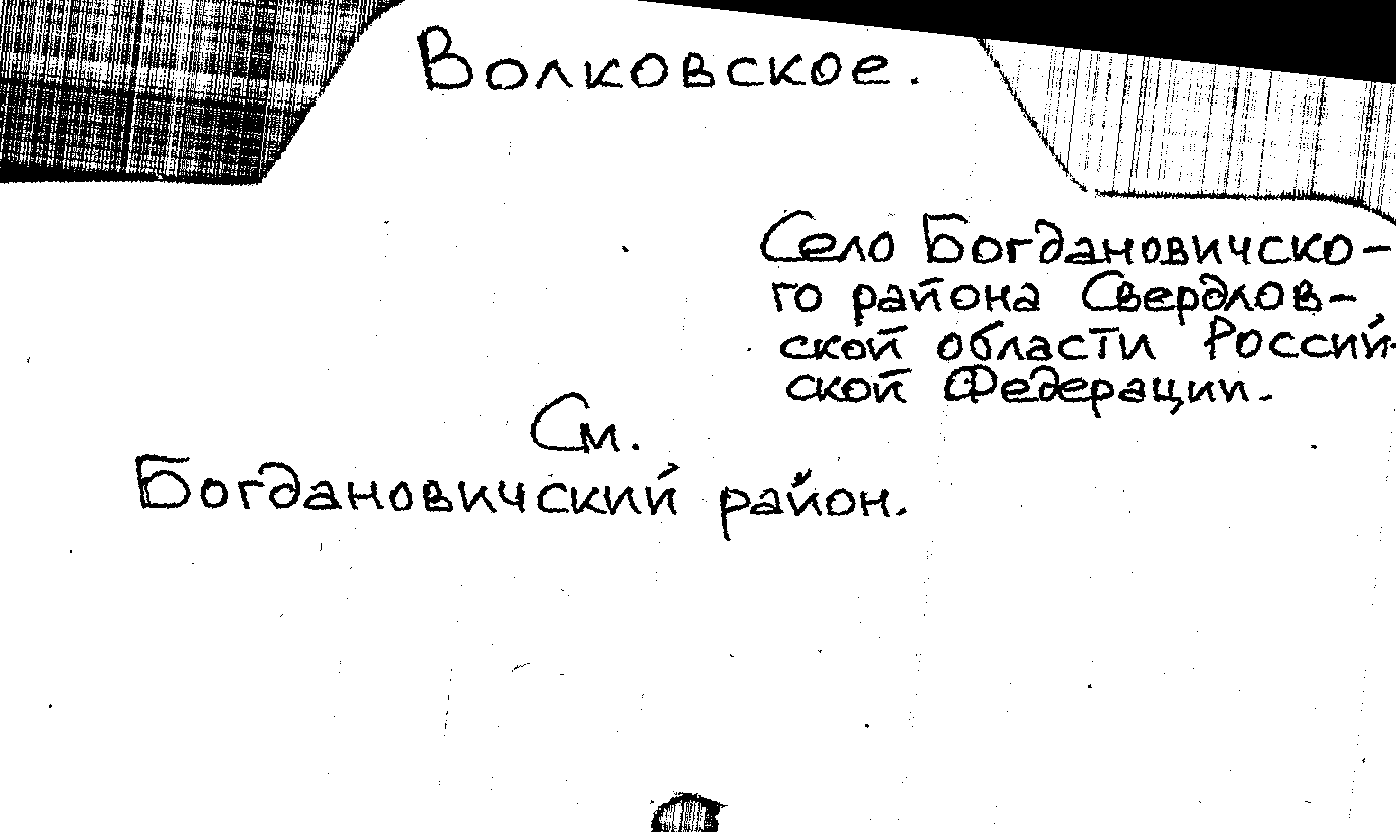 Волковское.
Село Богдановичско-
го района Свердлов-
ской области Россий-
ской Федерации.
См.
Богдановичский район.